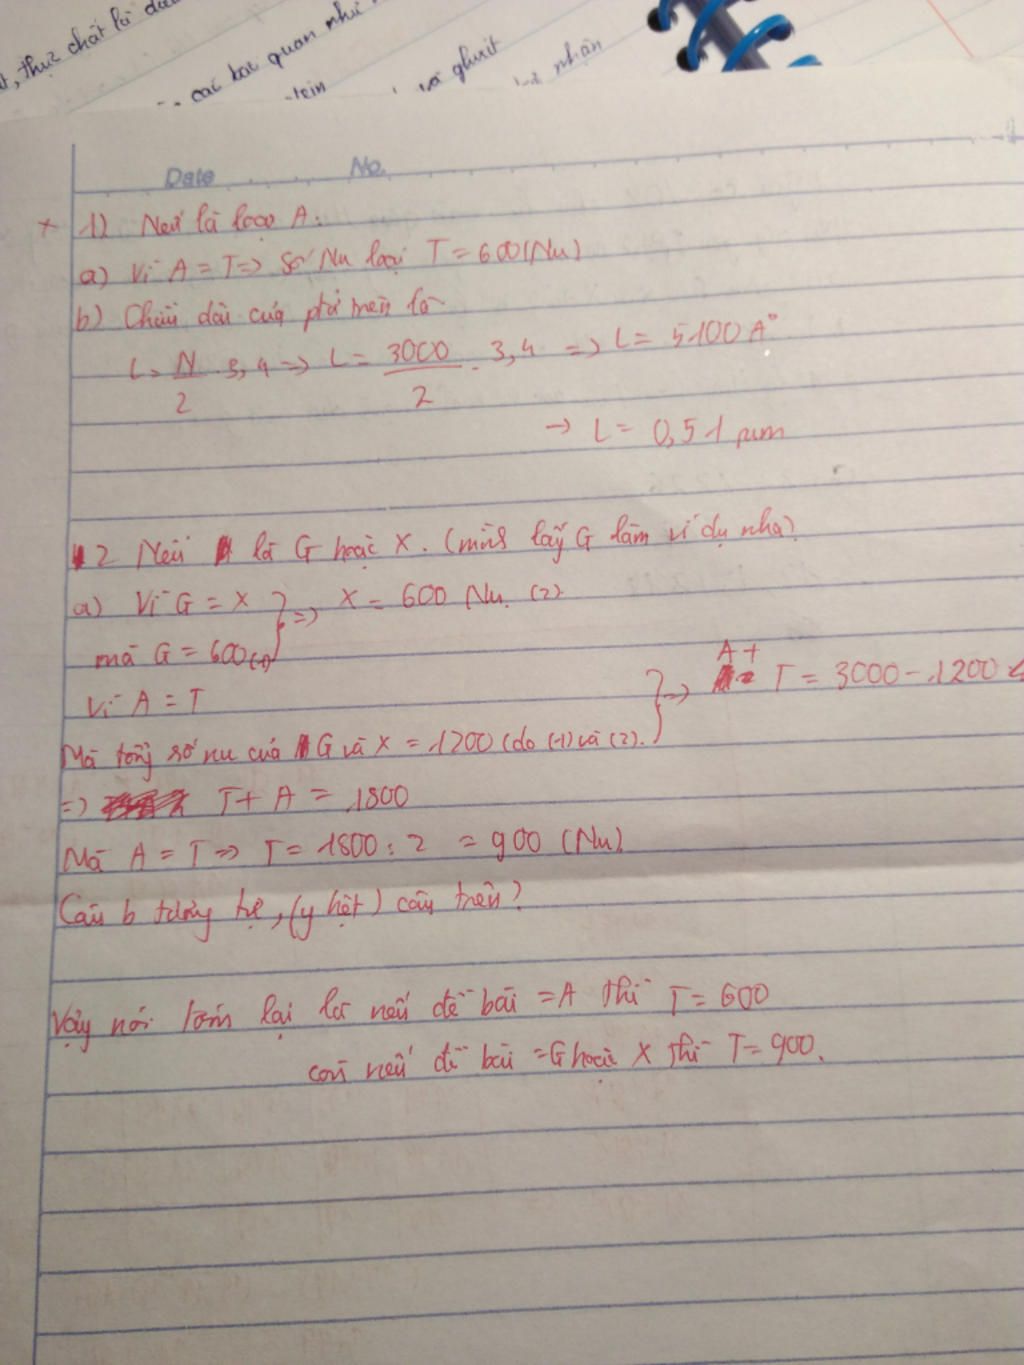 t, thực chất là
các bạc quan như
tein
và gluxit
nhận
Date No.
+ 1) Nếu là loại A:
a) Vì A = T => số Nu loại T = 600 (Nu)
b) Chiều dài của phử men là
L = N/2 . 3,4 => L = 3000/2 . 3,4 => L = 5100 A°
-> L = 0,51 µm
2 Nếu là G hoặc X. (mình lấy G làm ví dụ nha)
a) Vì G = X } => X = 600 Nu. (2)
mà G = 600 (1)
Vì A = T } => A + T = 3000 - 1200
Mà tổng số nu của G và X = 1200 (do (1) và (2).
=> T + A = 1800
Mà A = T => T = 1800 : 2 = 900 (Nu).
Câu b tương tự, (y hệt) câu trên?
Vậy nói tóm lại là nếu đề bài = A thì T = 600
còn nếu đề bài = G hoặc X thì T = 900.